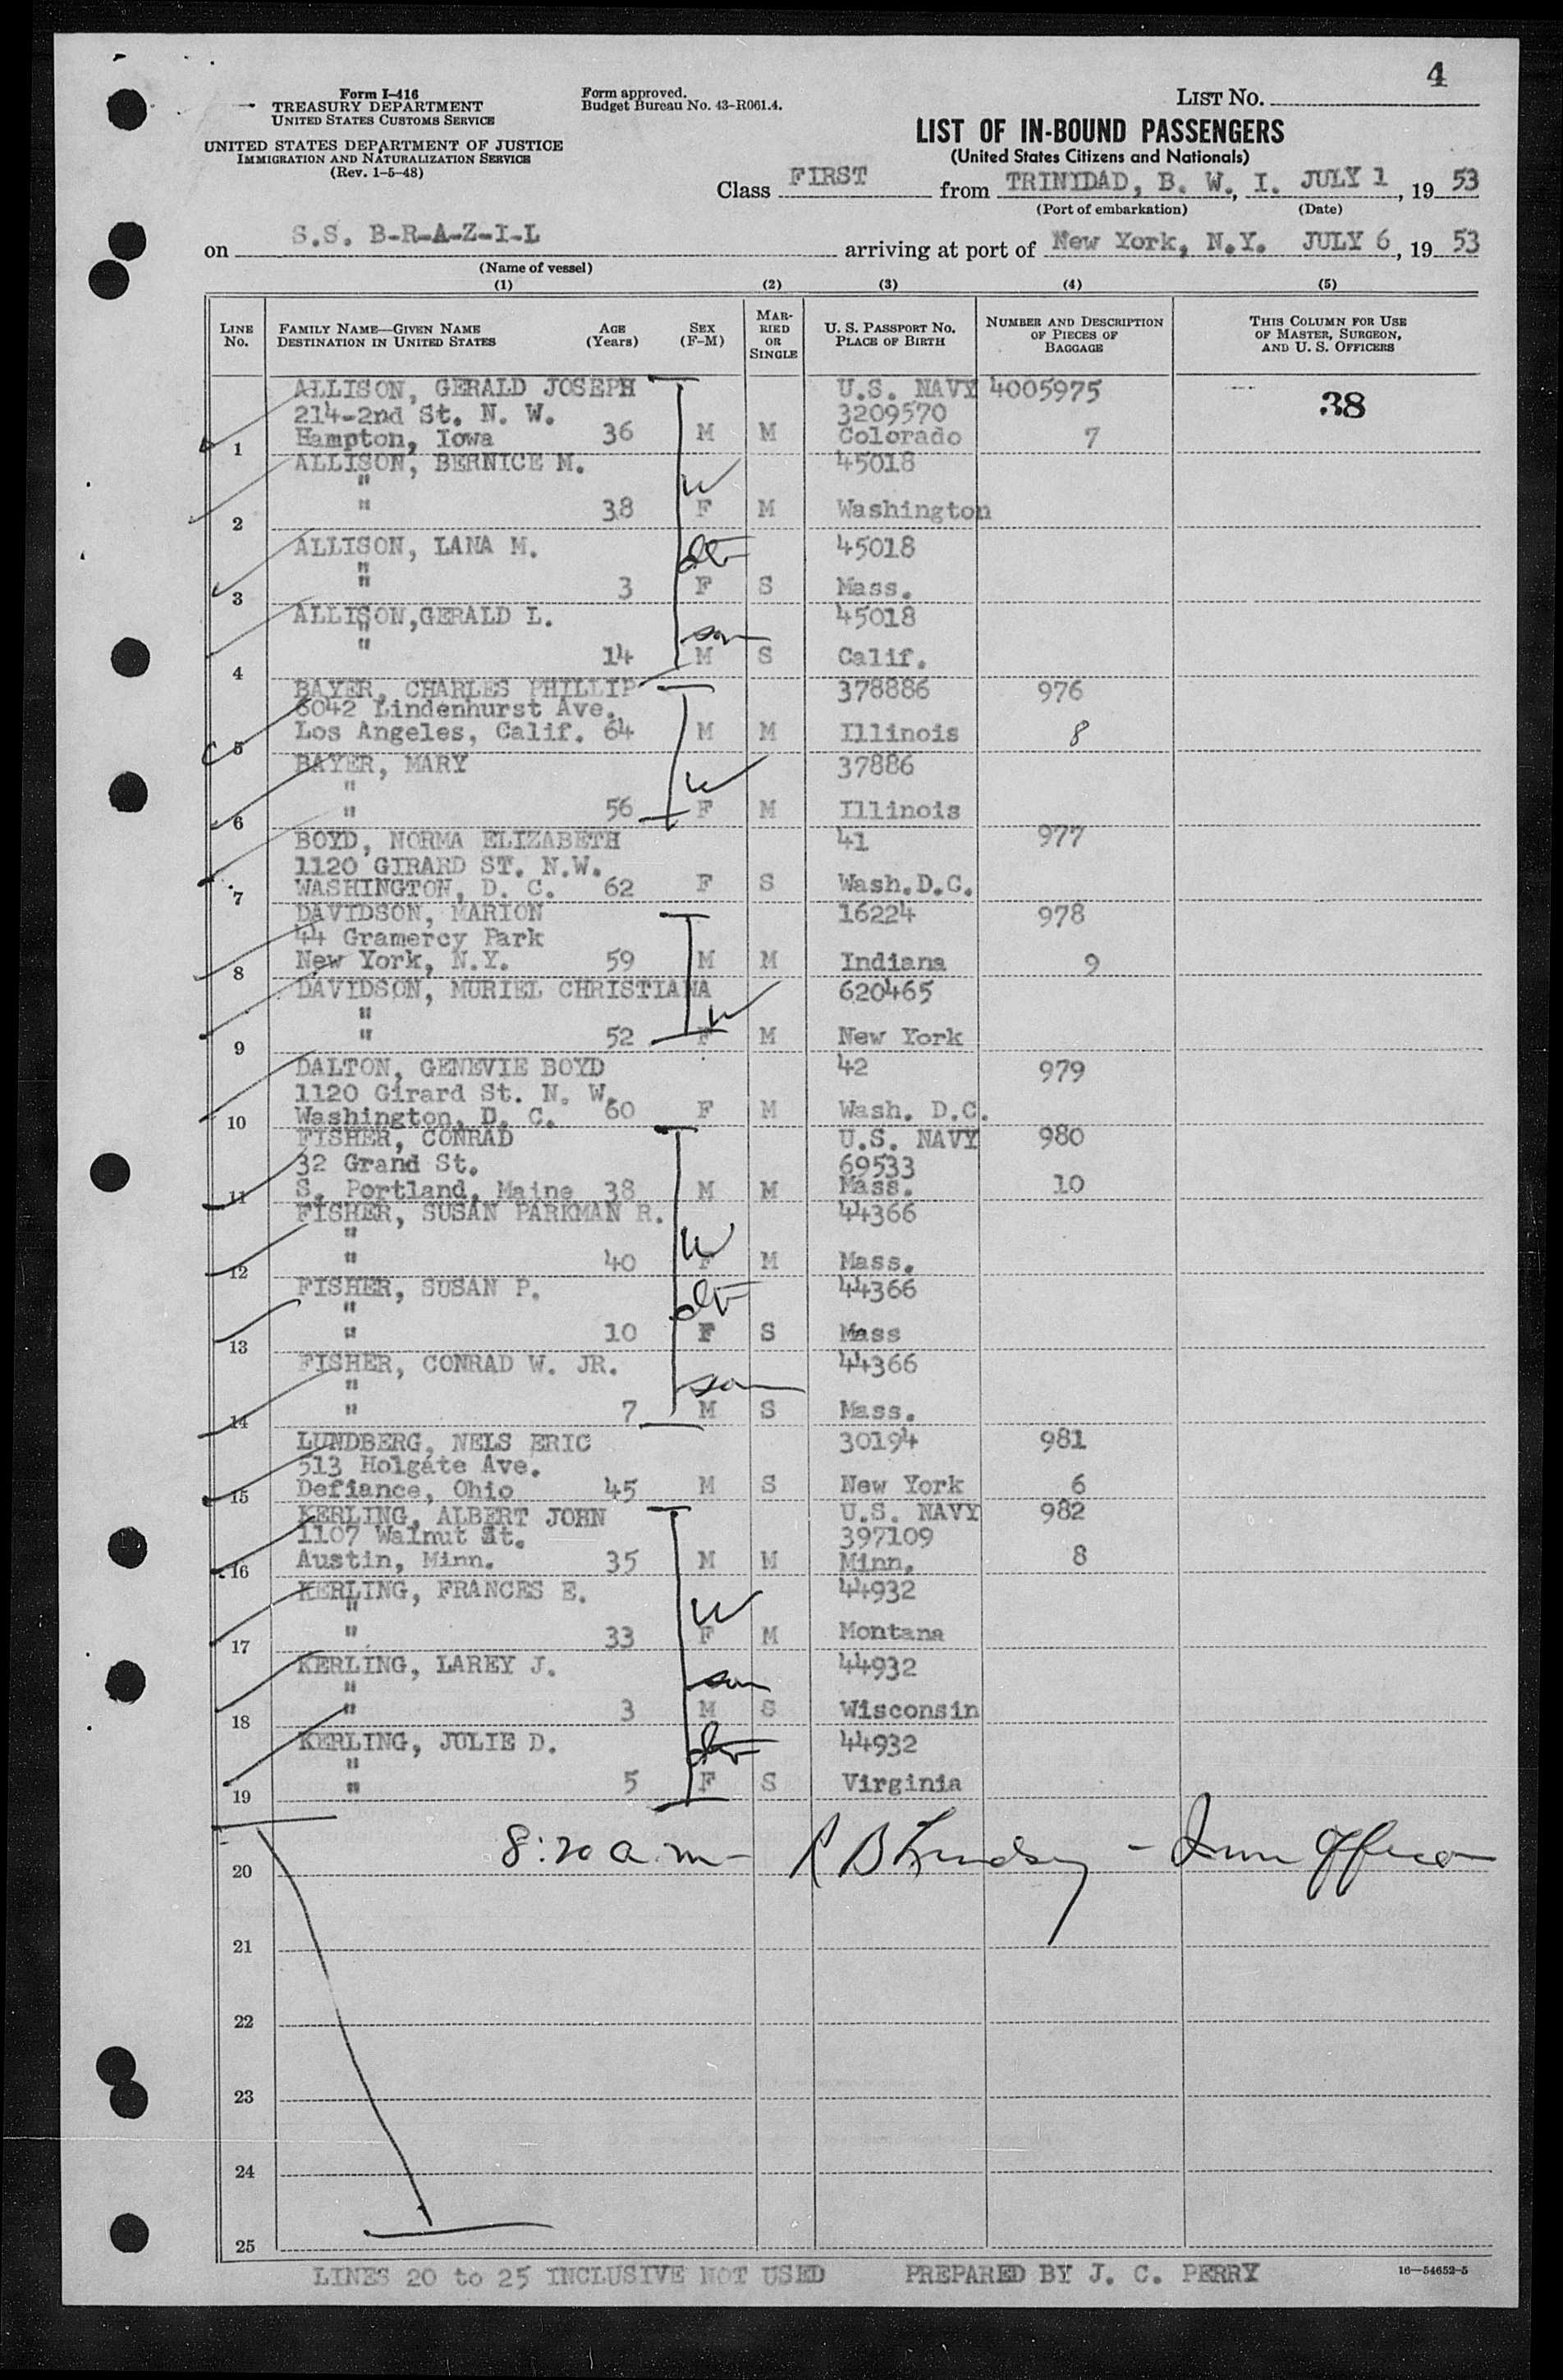 4
Form I-416
TREASURY DEPARTMENT
UNITED STATES CUSTOMS SERVICE
Form approved.
Budget Bureau No. 43-R061.4.
LIST NO.
UNITED STATES DEPARTMENT OF JUSTICE
IMMIGRATION AND NATURALIZATION SERVICE
(Rev. 1-5-48)
LIST OF IN-BOUND PASSENGERS
(United States Citizens and Nationals)
Class FIRST from TRINIDAD, B. W. I. JULY 1, 19 53
(Port of embarkation) (Date)
on S.S. B-R-A-Z-I-L arriving at port of New York, N.Y. JULY 6, 19 53
(Name of vessel)
(1) (2) (3) (4) (5)
LINE NO. FAMILY NAME—GIVEN NAME DESTINATION IN UNITED STATES AGE (Years) SEX (F-M) MARRIED OR SINGLE U. S. PASSPORT NO. PLACE OF BIRTH NUMBER AND DESCRIPTION OF PIECES OF BAGGAGE THIS COLUMN FOR USE OF MASTER, SURGEON, AND U. S. OFFICERS
ALLISON, GERALD JOSEPH U.S. NAVY 4005975 38
214-2nd St. N. W. 3209570
1 Hampton, Iowa 36 M M Colorado 7
ALLISON, BERNICE M. 45018
" W
2 " 38 F M Washington
ALLISON, LANA M. dtr 45018
"
3 " 3 F S Mass.
ALLISON,GERALD L. 45018
" son
4 " 14 M S Calif.
BAYER, CHARLES PHILLIP 378886 976
6042 Lindenhurst Ave.
5 Los Angeles, Calif. 64 M M Illinois 8
BAYER, MARY 37886
" W
6 " 56 F M Illinois
BOYD, NORMA ELIZABETH 41 977
1120 GIRARD ST. N.W.
7 WASHINGTON, D. C. 62 F S Wash.D.C.
DAVIDSON, MARION 16224 978
44 Gramercy Park
8 New York, N.Y. 59 M M Indiana 9
DAVIDSON, MURIEL CHRISTIANA 620465
" W
9 " 52 F M New York
DALTON, GENEVIE BOYD 42 979
1120 Girard St. N. W.
10 Washington, D. C. 60 F M Wash. D.C.
FISHER, CONRAD U.S. NAVY 980
32 Grand St. 69533
11 S. Portland, Maine 38 M M Mass. 10
FISHER, SUSAN PARKMAN R. 44366
" W
12 " 40 F M Mass.
FISHER, SUSAN P. dtr 44366
"
13 " 10 F S Mass
FISHER, CONRAD W. JR. 44366
" son
14 " 7 M S Mass.
LUNDBERG, NELS ERIC 30194 981
513 Holgate Ave.
15 Defiance, Ohio 45 M S New York 6
KERLING, ALBERT JOHN U.S. NAVY 982
1107 Walnut St. 397109
16 Austin, Minn. 35 M M Minn. 8
KERLING, FRANCES E. 44932
" W
17 " 33 F M Montana
KERLING, LAREY J. 44932
" son
18 " 3 M S Wisconsin
KERLING, JULIE D. dtr 44932
"
19 " 5 F S Virginia
20 8:20 a.m. R B Lindsey - Imm Officer
21
22
23
24
25
LINES 20 to 25 INCLUSIVE NOT USED PREPARED BY J. C. PERRY 16-54652-5